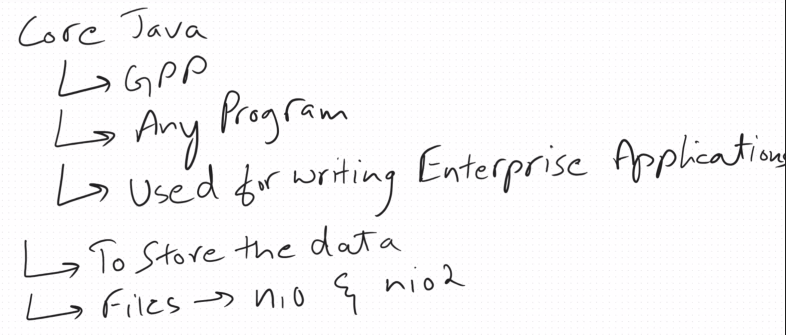 Core Java
↳ GPP
↳ Any Program
↳ Used for writing Enterprise Applications
↳ To Store the data
↳ Files → nio & nio2